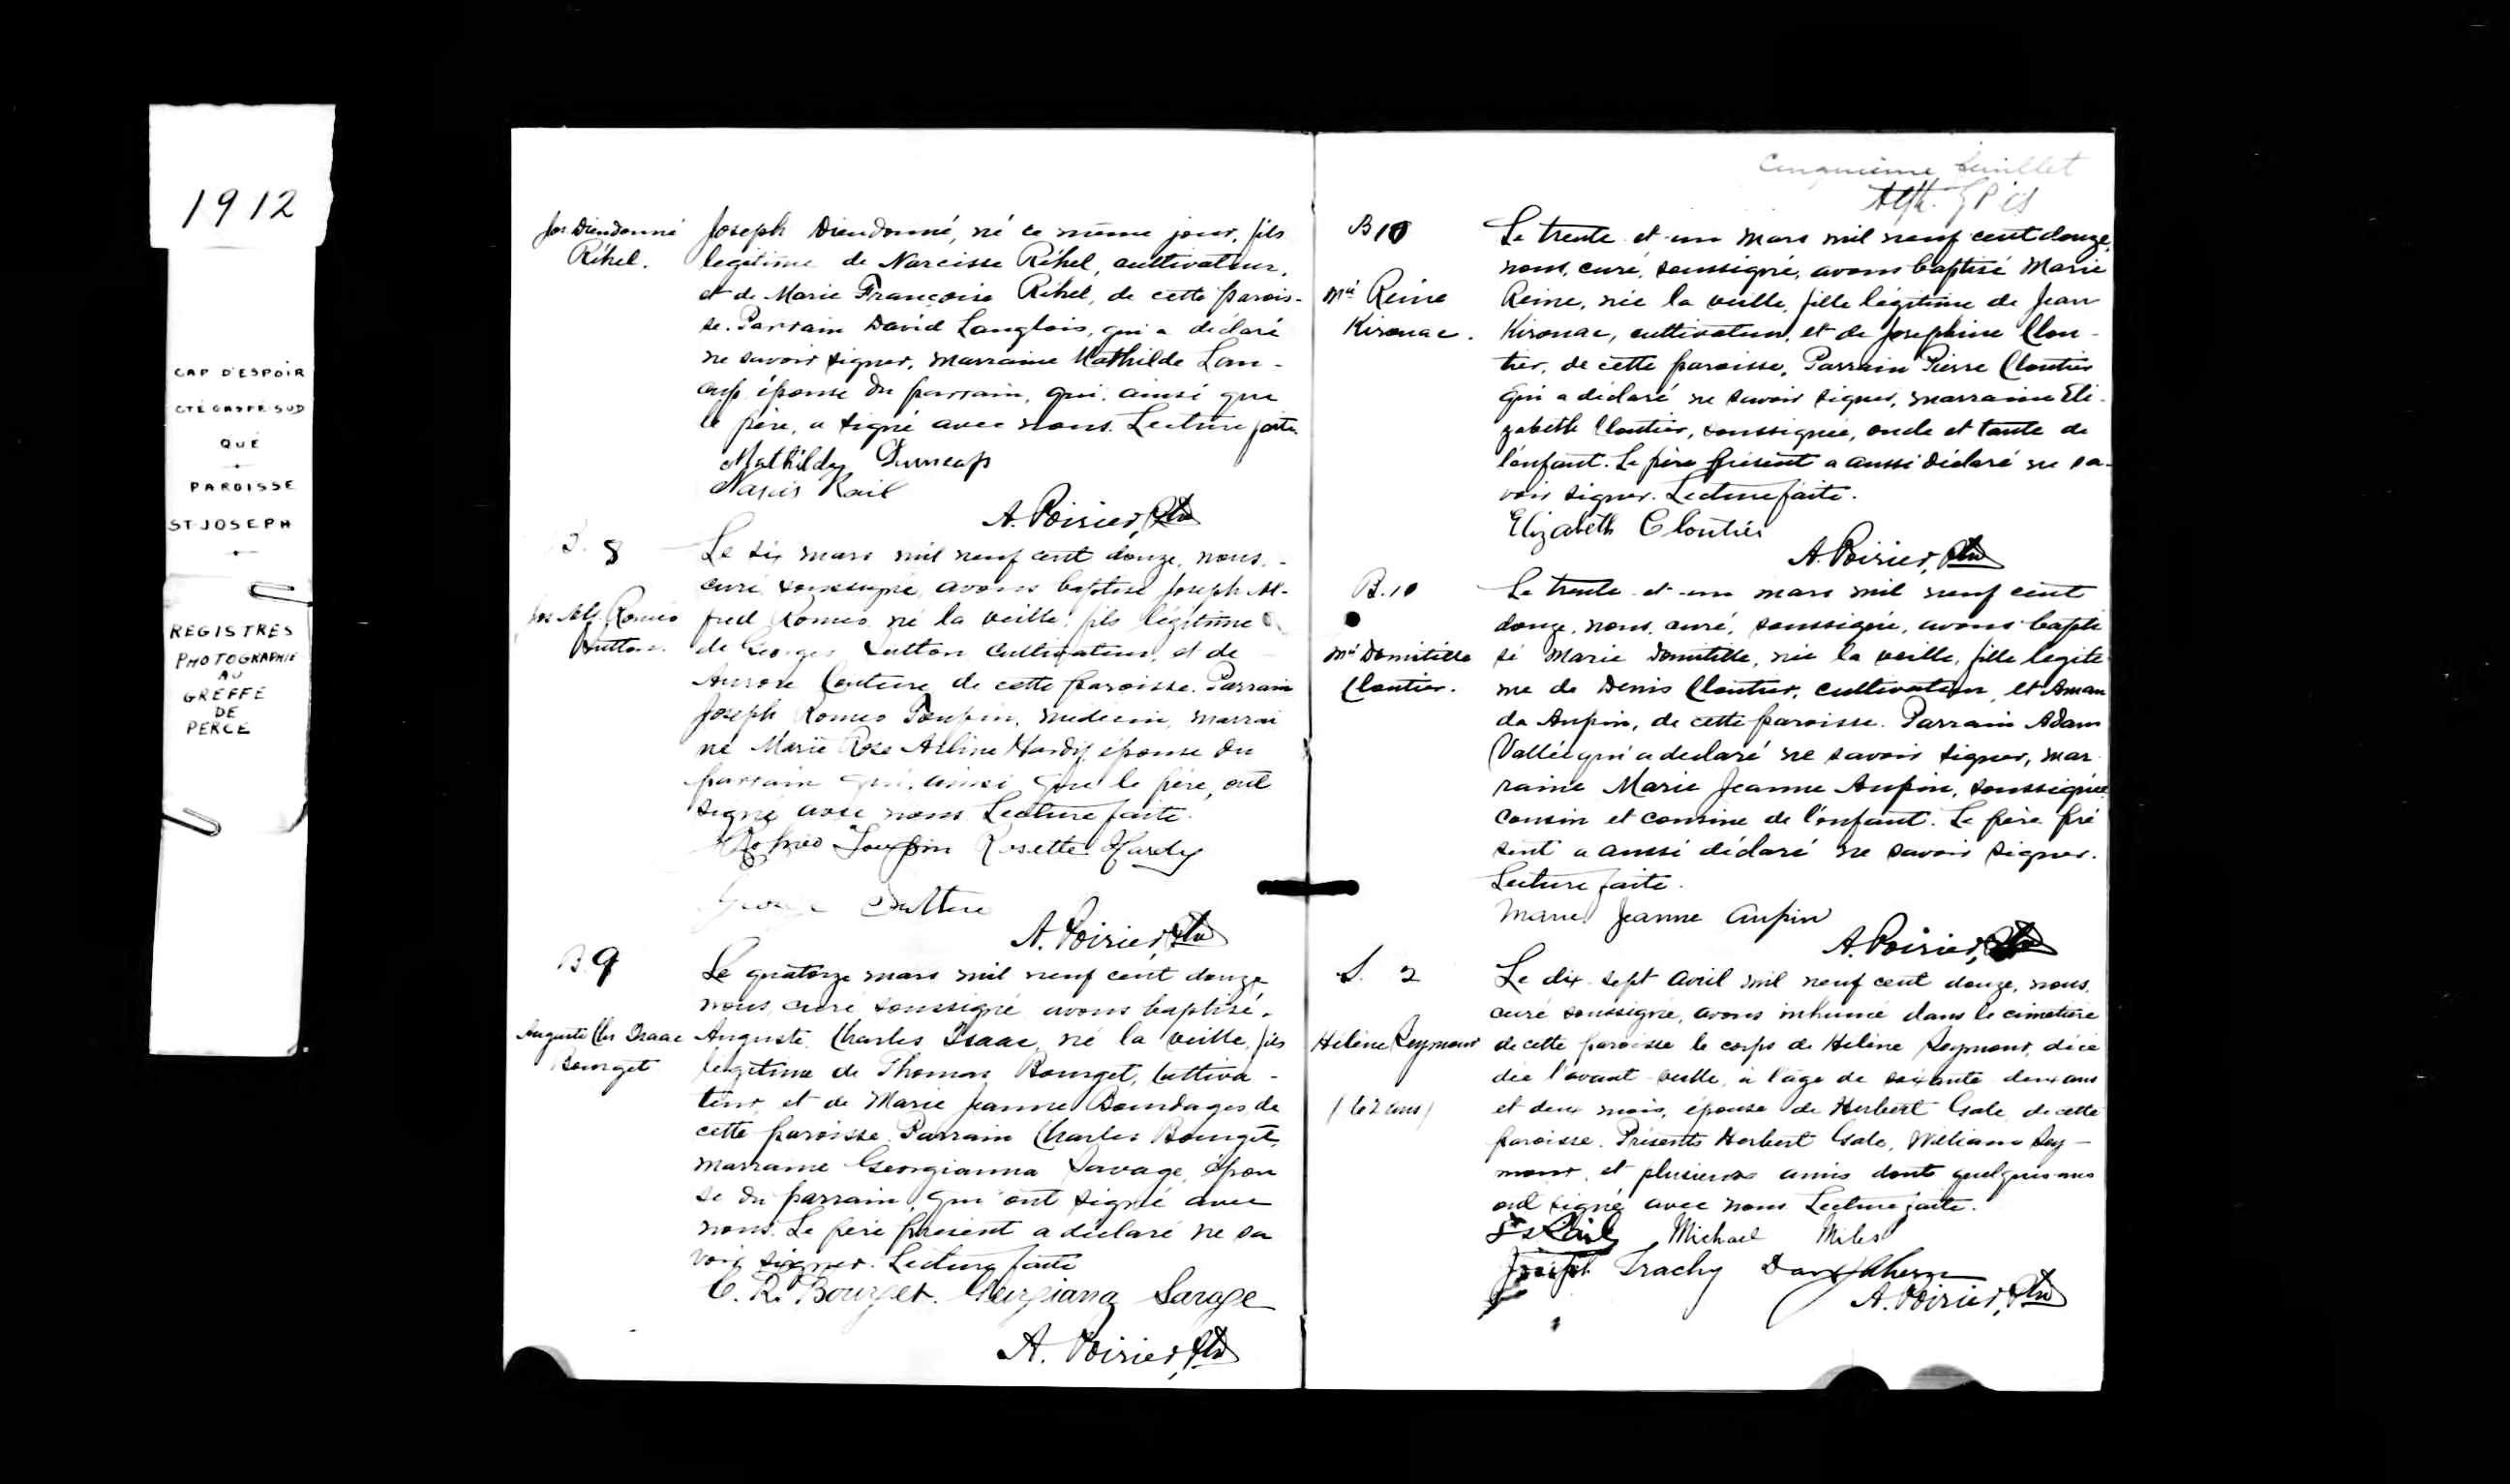 1912
CAP D'ESPOIR
CTÉ GASPÉ SUD
QUÉ
PAROISSE
ST-JOSEPH
REGISTRES
PHOTOGRAPHIE
AU
GREFFE
DE
PERCE
Jos. Dieudonné
Réhel.
Joseph Dieudonné, né ce même jour, fils
legitime de Narcisse Réhel, cultivateur,
et de Marie Françoise Réhel, de cette parois-
se. Parrain David Langlois, qui a déclaré
ne savoir signer, marraine Mathilde
épouse du parrain, qui, ainsi que
le père, a signé avec nous. Lecture faite.
Mathilda
Narcis Rail
A. Poirier, Ptre
B. 8
Jos. Alf. Romeo
Sutton.
Le six mars mil neuf cent douze, nous,
curé soussigné, avons baptisé Joseph Al-
fred Romeo né la veille, fils légitime
de Georges Sutton cultivateur, et de
Aurore Couture de cette paroisse. Parrain
Joseph Romeo Toupin, médecin, marrai
ne Marie Rose Hardy, épouse du
parrain qui, ainsi que le père, ont
signé avec nous Lecture faite.
Toupin Rosette Hardy
George
A. Poirier, Ptre
B. 9
Auguste Chs Isaac
Bourget
Le quatorze mars mil neuf cent douze
nous, curé soussigné avons baptisé
Auguste Charles Isaac, né la veille, fils
légitime de Thomas Bourget, cultiva-
teur, et de Marie Jeanne Bourdages de
cette paroisse. Parrain Charles Bourget,
marraine Georgianna Savage, épou
se du parrain, qui ont signé avec
nous. Le père présent a déclaré ne sa
voir signer. Lecture faite
C. R. Bourget. Georgiana Savage
A. Poirier, Ptre
Cinquième feuillet
B 10
Mie Reine
Kirouac.
Le trente et un mars mil neuf cent douze,
nous, curé, soussigné, avons baptisé Marie
Reine, née la veille, fille légitime de Jean
Kirouac, cultivateur, et de Josephine Clou-
tier, de cette paroisse. Parrain Pierre Cloutier
qui a déclaré ne savoir signer, marraine Eli-
zabeth Cloutier, soussignée, oncle et tante de
l'enfant. Le père présent a aussi déclaré ne sa-
voir signer. Lecture faite.
Elizabeth Cloutier
A. Poirier, Ptre
B. 10
Mie Domitille
Cloutier.
Le trente et un mars mil neuf cent
douze, nous, curé, soussigné, avons bapti
sé Marie Domitille, née la veille, fille legiti
me de Denis Cloutier, cultivateur, et Aman
da Aupin, de cette paroisse. Parrain Adam
Vallée qui a declaré ne savoir signer, mar
raine Marie Jeanne Aupin, soussignée
cousin et cousine de l'enfant. Le père pré
sent a aussi déclaré ne savoir signer.
Lecture faite.
Marie Jeanne Aupin
A. Poirier, Ptre
S. 2
Hélène Seymour
(62 ans)
Le dix-sept avril mil neuf cent douze, nous,
curé soussigné, avons inhumé dans le cimetière
de cette paroisse le corps de Hélène Seymour, décé
dée l'avant-veille, à l'âge de soixante deux ans
et deux mois, épouse de Herbert Gale, de cette
paroisse. Présents Herbert Gale, William Sey-
mour, et plusieurs amis dont quelques-uns
ont signé avec nous Lecture faite.
Michael Miles
Joseph Trachy
A. Poirier, Ptre